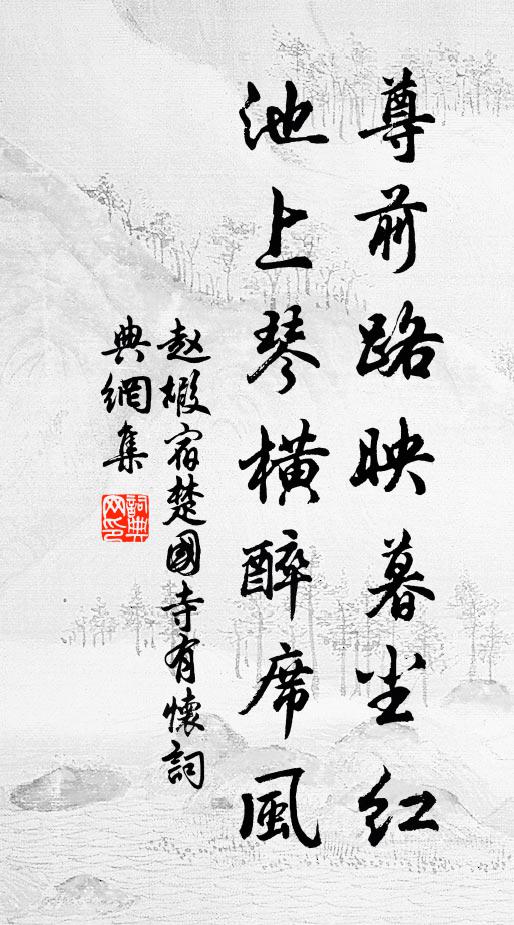 尊前路映暮尘红
池上琴横醉席風
赵嘏宿楚國寺有懷詞
典網集
詞典
网印